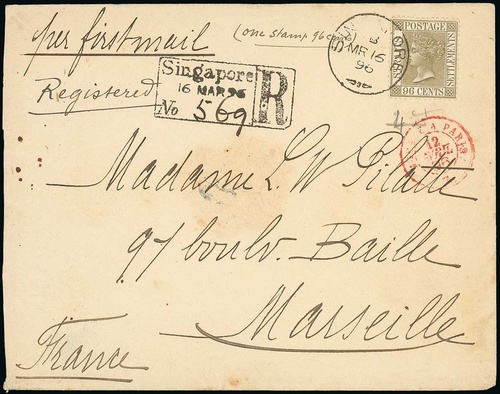 per first mail
(one stamp 96 c
Registered
Singapore
16 MAR 96
No 569
R
MR 16
96
POSTAGE
96 CENTS
PARIS
12
Madame L. W Pilatte
97 boulv. Baille
Marseille
France